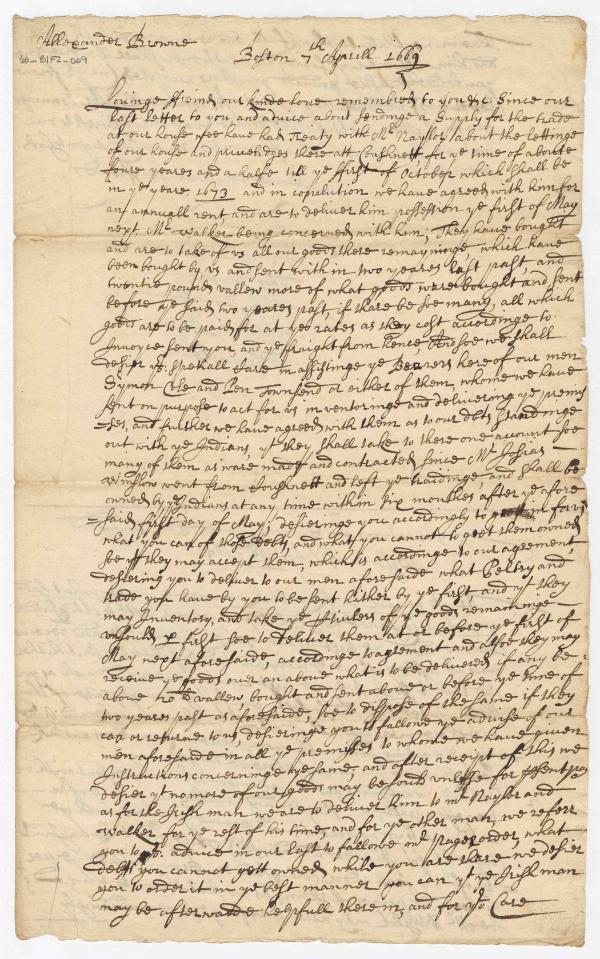 Allexander Browne
60-81F2-009
Boston 7th Aprill 1669
Louinge ffreind our kinde loue remembred to you &c: Since our
last letter to you, and advice about sendinge a Supply for the trade
at our house wee haue had Treaty with Mr Naylor about the lettinge
of our house and priviledges there att Coushnett for ye time of aboute
foure yeares and a halfe till ye ffirst of October which shall be
in ye yeare 1673 and in conclution we have agreed with him for
an annuall rent and are to deliver him possession ye first of May
next Mr Walker being concerned with him; They have bought
and are to take of vs all our goods there remayninge which have
been bought by vs and sent with in two yeares last past, and
twentie pounds vallew more of what goods were bought and sent
before ye said two yeares past, if thare be soe many, all which
goods are to be paid for at ye rates as they cost accordinge to
Invoyce sent you and ye fraight from hence, And soe we shall
desier yr speciall Care in assistinge ye Bearers here of our men
Symon and Pen Townsend or either of them, whome we have
sent on purpose to act for vs in inventoringe and deliveringe ye premis
=ses, and further we have agreed with them as to our debts standinge
out with ye Indians, yt they shall take to there one account soe
many of them as ware made and contracted since Mr Josias
Winslow went from Coushnett and left ye traidinge, and shall be
owned by ye Indians at any time within six monthes after ye afore
=said first day of May; desieringe you accordingly to in
what you can of those debts, and what you cannot to gett them owned
soe yt they may accept them, which is accordinge to our agreement,
desieringe you to deliver to our men aforesaide what Peltry and
trade you have by you to be sent hither by ye first, and yt they
may Inventory, and take ye of ye goods remaininge
vnsould p first soe to deliver them at or before ye first of
May next aforesaide, accordinge to agreement and alsoe they may
receive ye goods over an above what is to be delivered if any be
above 20£ vallew bought and sent above or before ye time of
two yeares past as aforesaide, soe to dispose of the same if they
can or returne to vs, desieringe you to followe ye advise of our
men aforesaide in all ye premisses to whome we have given
Instructions concerninge ye same, and after receipt of this we
desier yt no more of our goods may be sould vnlesse for p̄sent pay
as for the Irish man we are to deliver him to Mr Naylor and
Walker for ye rest of his time, and for ye other man, we referr
you to advice in our last to followe Mr Pages order, what
debts you cannot gett owned while you are thare we desier
you to order it in ye best manner you can yt ye Irish man
may be afterwards helpfull there in, and for yr Care